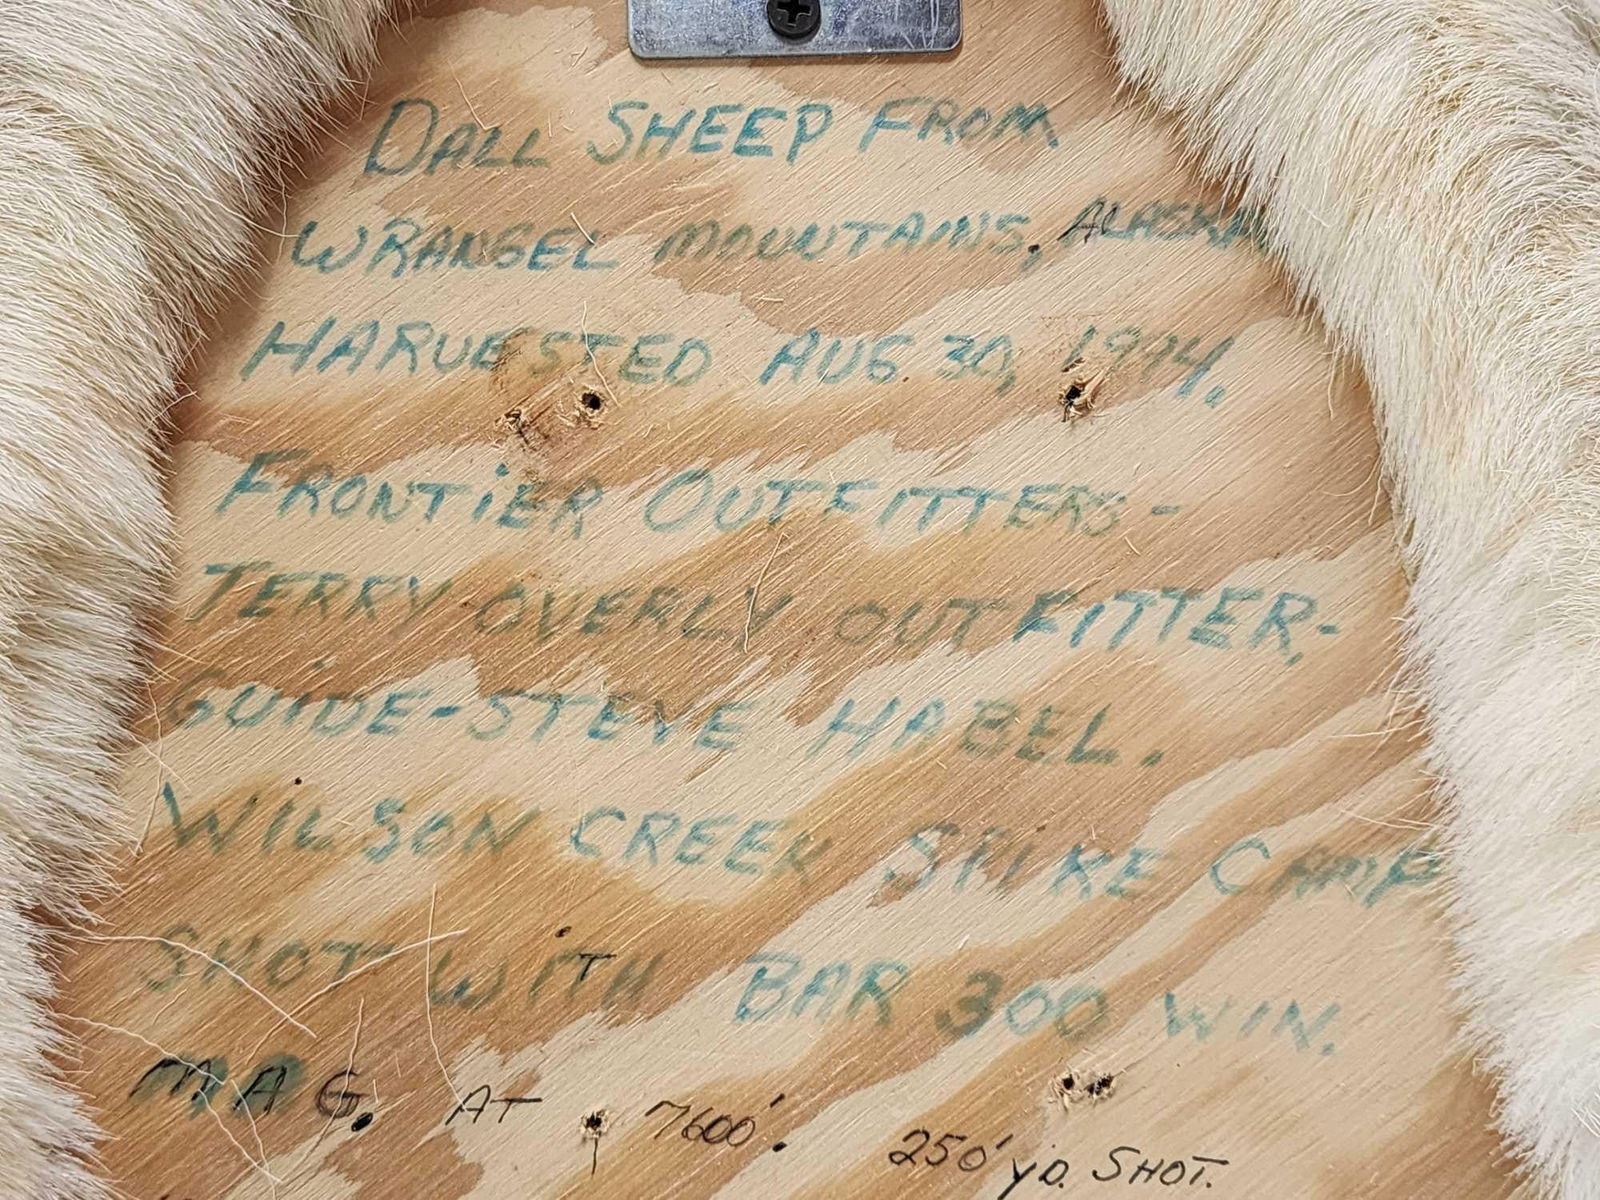 DALL SHEEP FROM
WRANGEL MOUNTAINS, ALASKA
HARVESTED AUG 30, 1994.
FRONTIER OUTFITTERS-
TERRY OVERLY OUTFITTER,-
GUIDE-STEVE HABEL.
WILSON CREEK SPIKE CAMP
SHOT WITH BAR 300 WIN.
MAG. AT 7600'. 250' YD. SHOT.